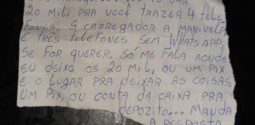 20 MIL, PRA VOCÊ TRAZER 4 TELE
FONES. 5 CARREGADOR A MANIVELA
E TRÊS TELEFONES SEM WHATSAPP,
SE FOR QUERER, SÓ ME FALA AONDE
EU DEIXO OS 20 MIL, OU UM PIX
E O LUGAR PRA DEIXAR AS COISAS,
UM PIX, OU CONTA DA CAIXA PRA
DEPOZITO... MANDA
A RESPOSTA